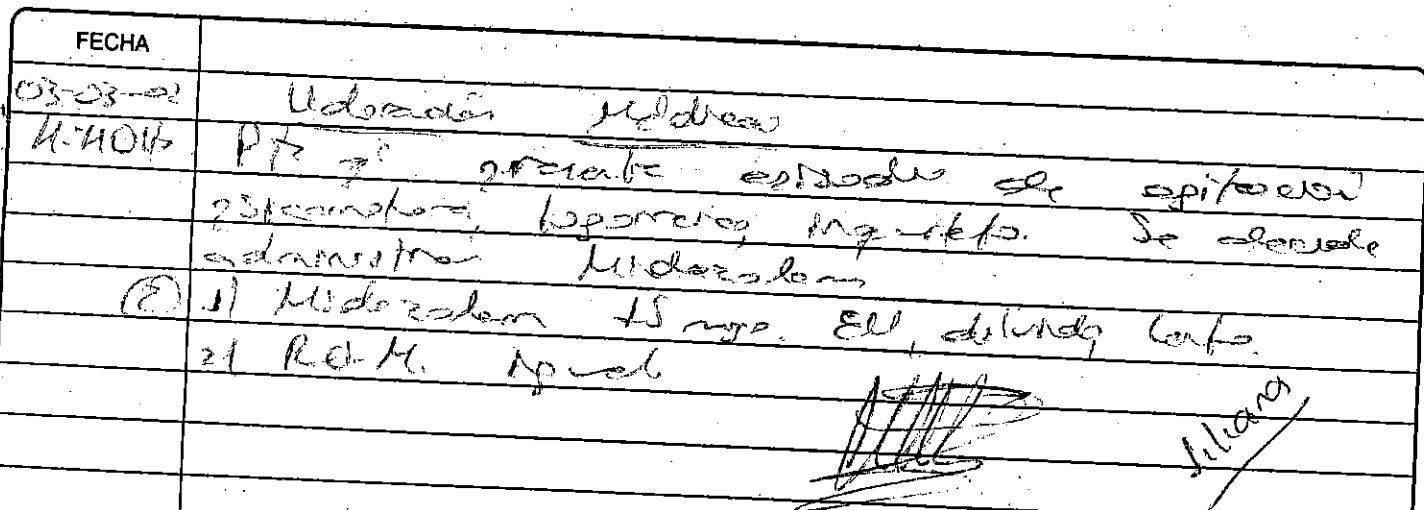 FECHA
03-03-02 Valoración Médica
Pte q' presenta episodio de agitación
psicomotora, logorreico, inquieto. Se decide
administrar Midazolam
1) Midazolam 15 mgs. EV, diluido, lento.
2) R.O.M. igual
Liliana